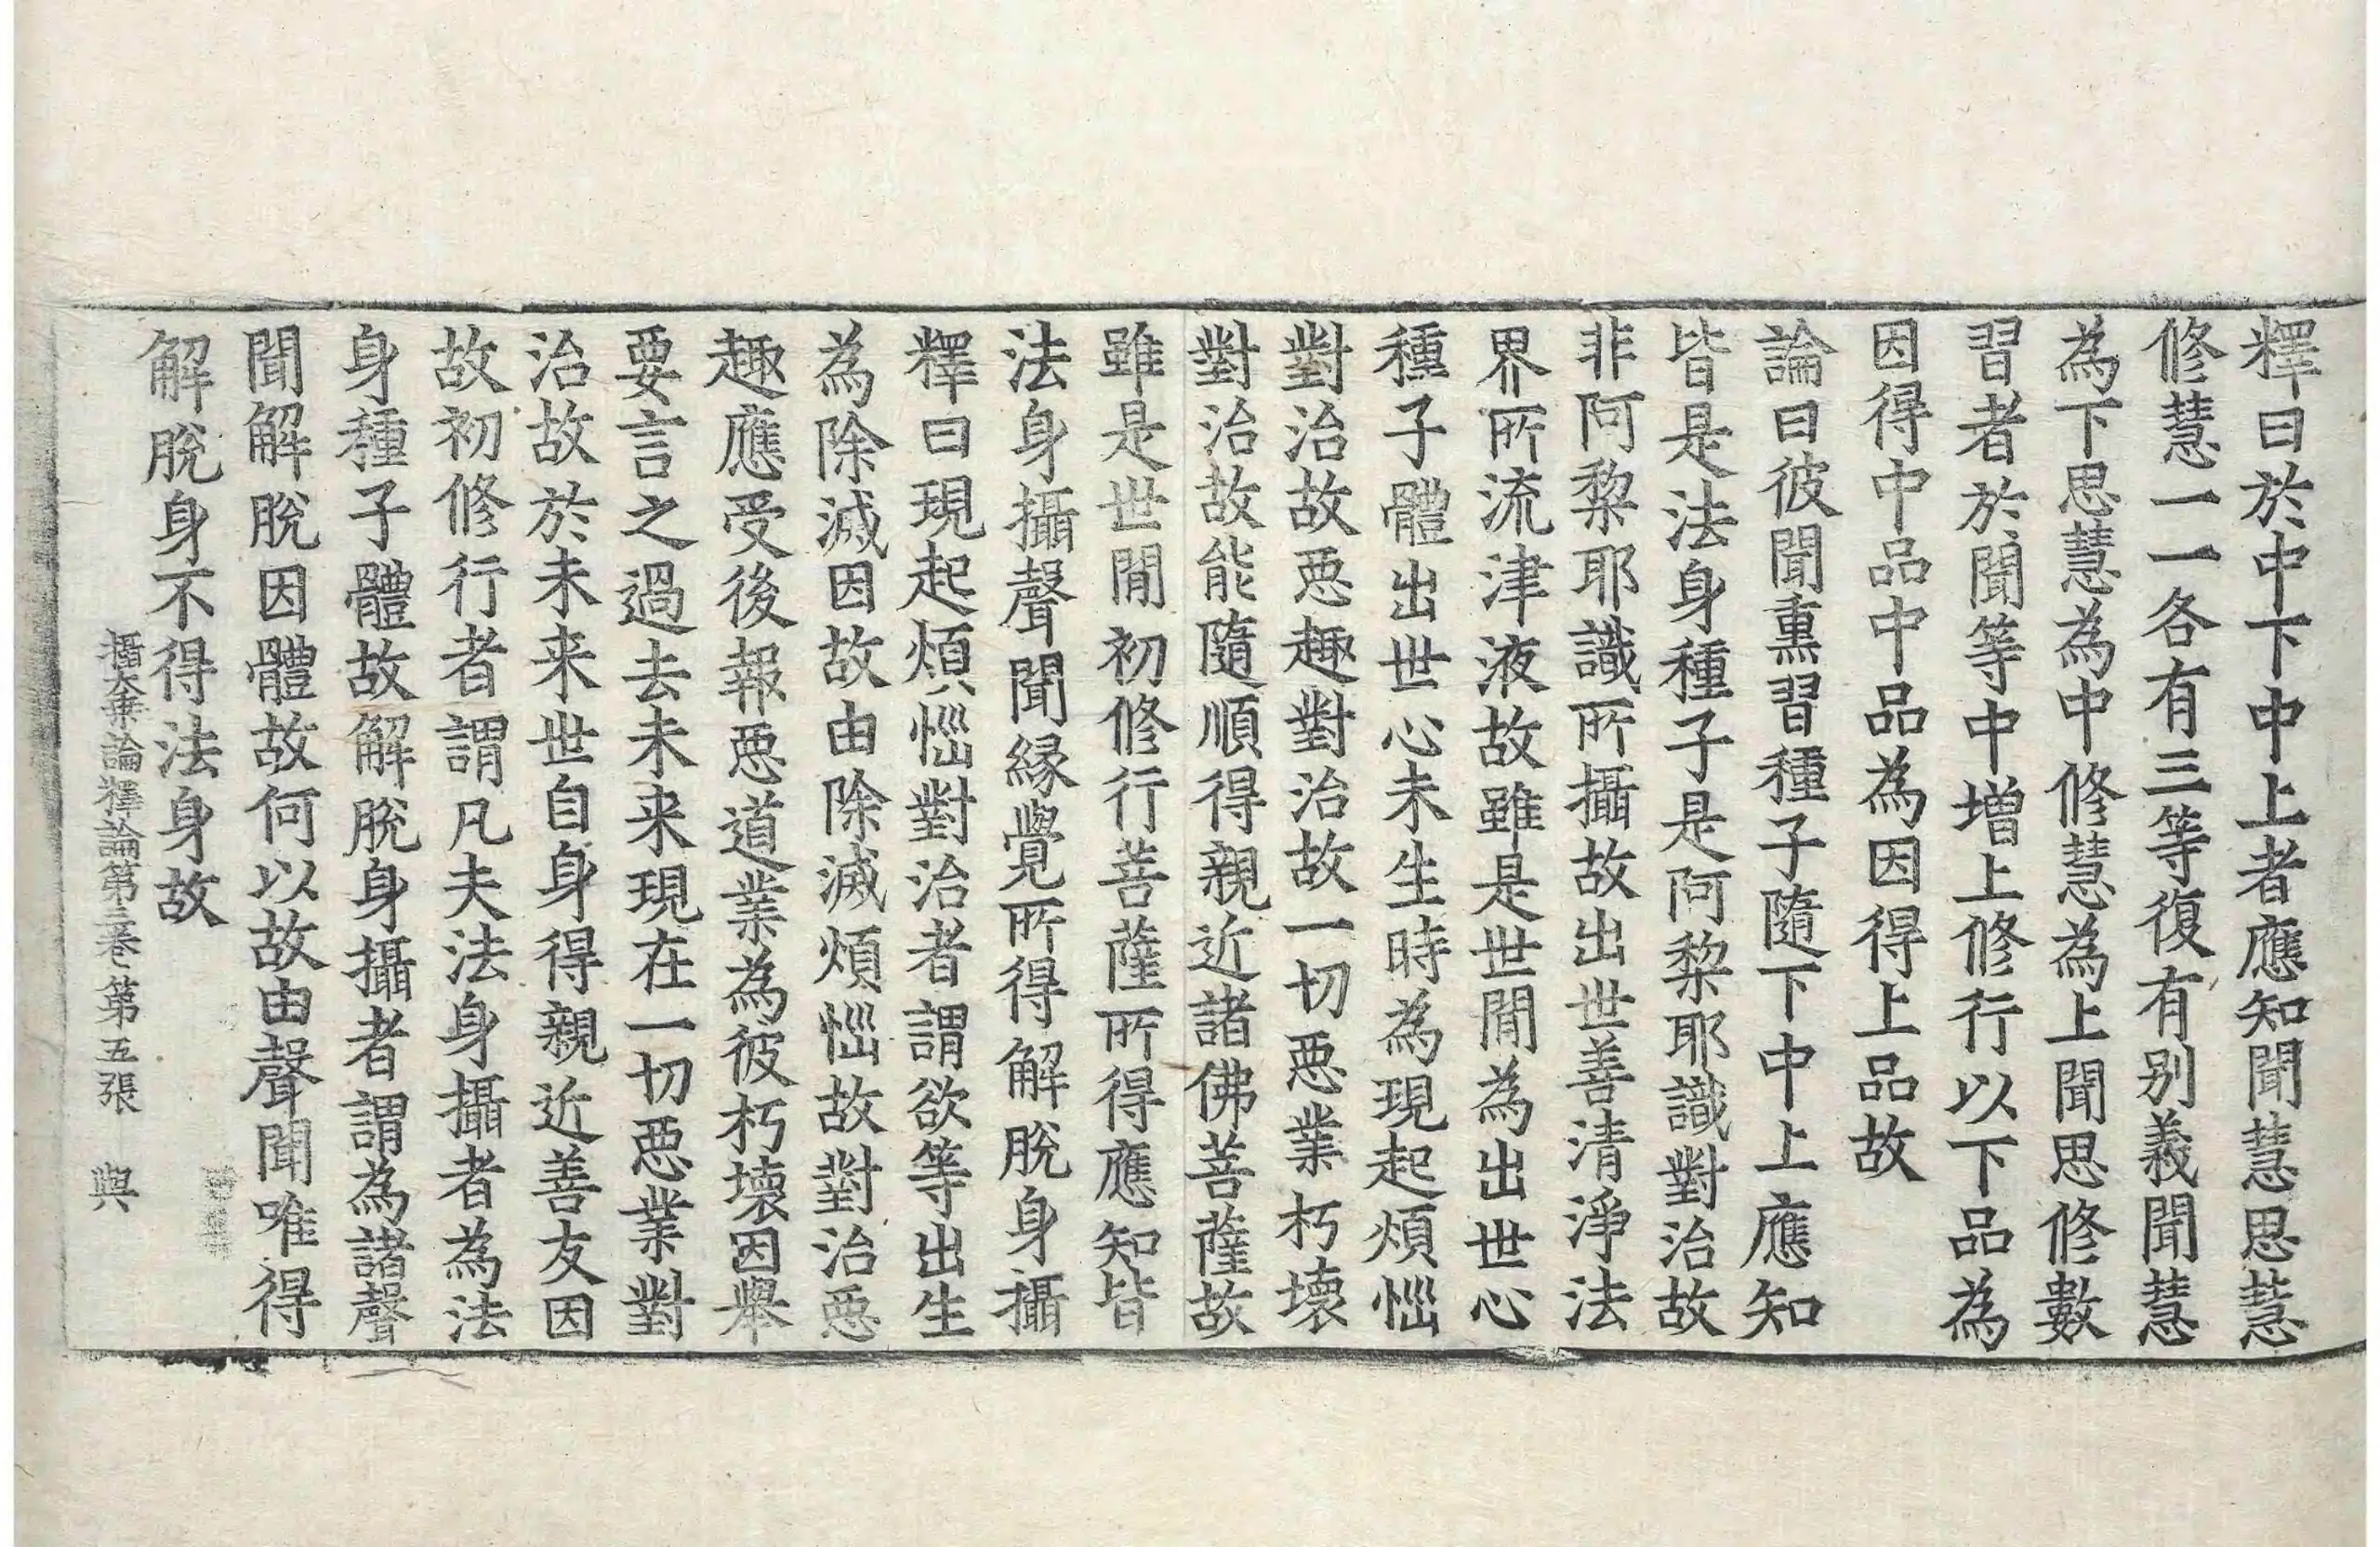 釋曰於中下中上者應知聞慧思慧
修慧一一各有三等復有別義聞慧
為下思慧為中修慧為上聞思修數
習者於聞等中增上修行以下品為
因得中品中品為因得上品故
論曰彼聞熏習種子隨下中上應知
皆是法身種子是阿黎耶識對治故
非阿黎耶識所攝故出世善清淨法
界所流津液故雖是世間為出世心
種子體出世心未生時為現起煩惱
對治故惡趣對治故一切惡業朽壞
對治故能隨順得親近諸佛菩薩故
雖是世間初修行菩薩所得應知皆
法身攝聲聞緣覺所得解脫身攝
釋曰現起煩惱對治者謂欲等出生
為除滅因故由除滅煩惱故對治惡
趣應受後報惡道業為彼朽壞因舉
要言之過去未来現在一切惡業對
治故於未来世自身得親近善友因
故初修行者謂凡夫法身攝者為法
身種子體故解脫身攝者謂為諸聲
聞解脫因體故何以故由聲聞唯得
解脫身不得法身故
攝大乗論釋論第三卷第五張 與